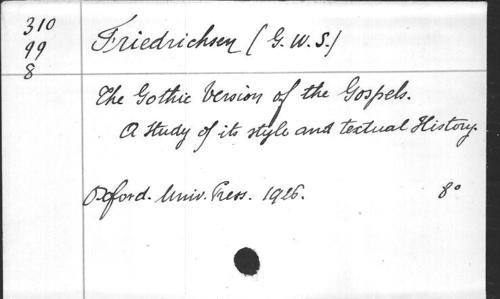 310
99
8
Friedrichsen (G.W.S.)
The Gothic Version of the Gospels.
A Study of its style and textual History.
Oxford. Univ. Press. 1926. 8°